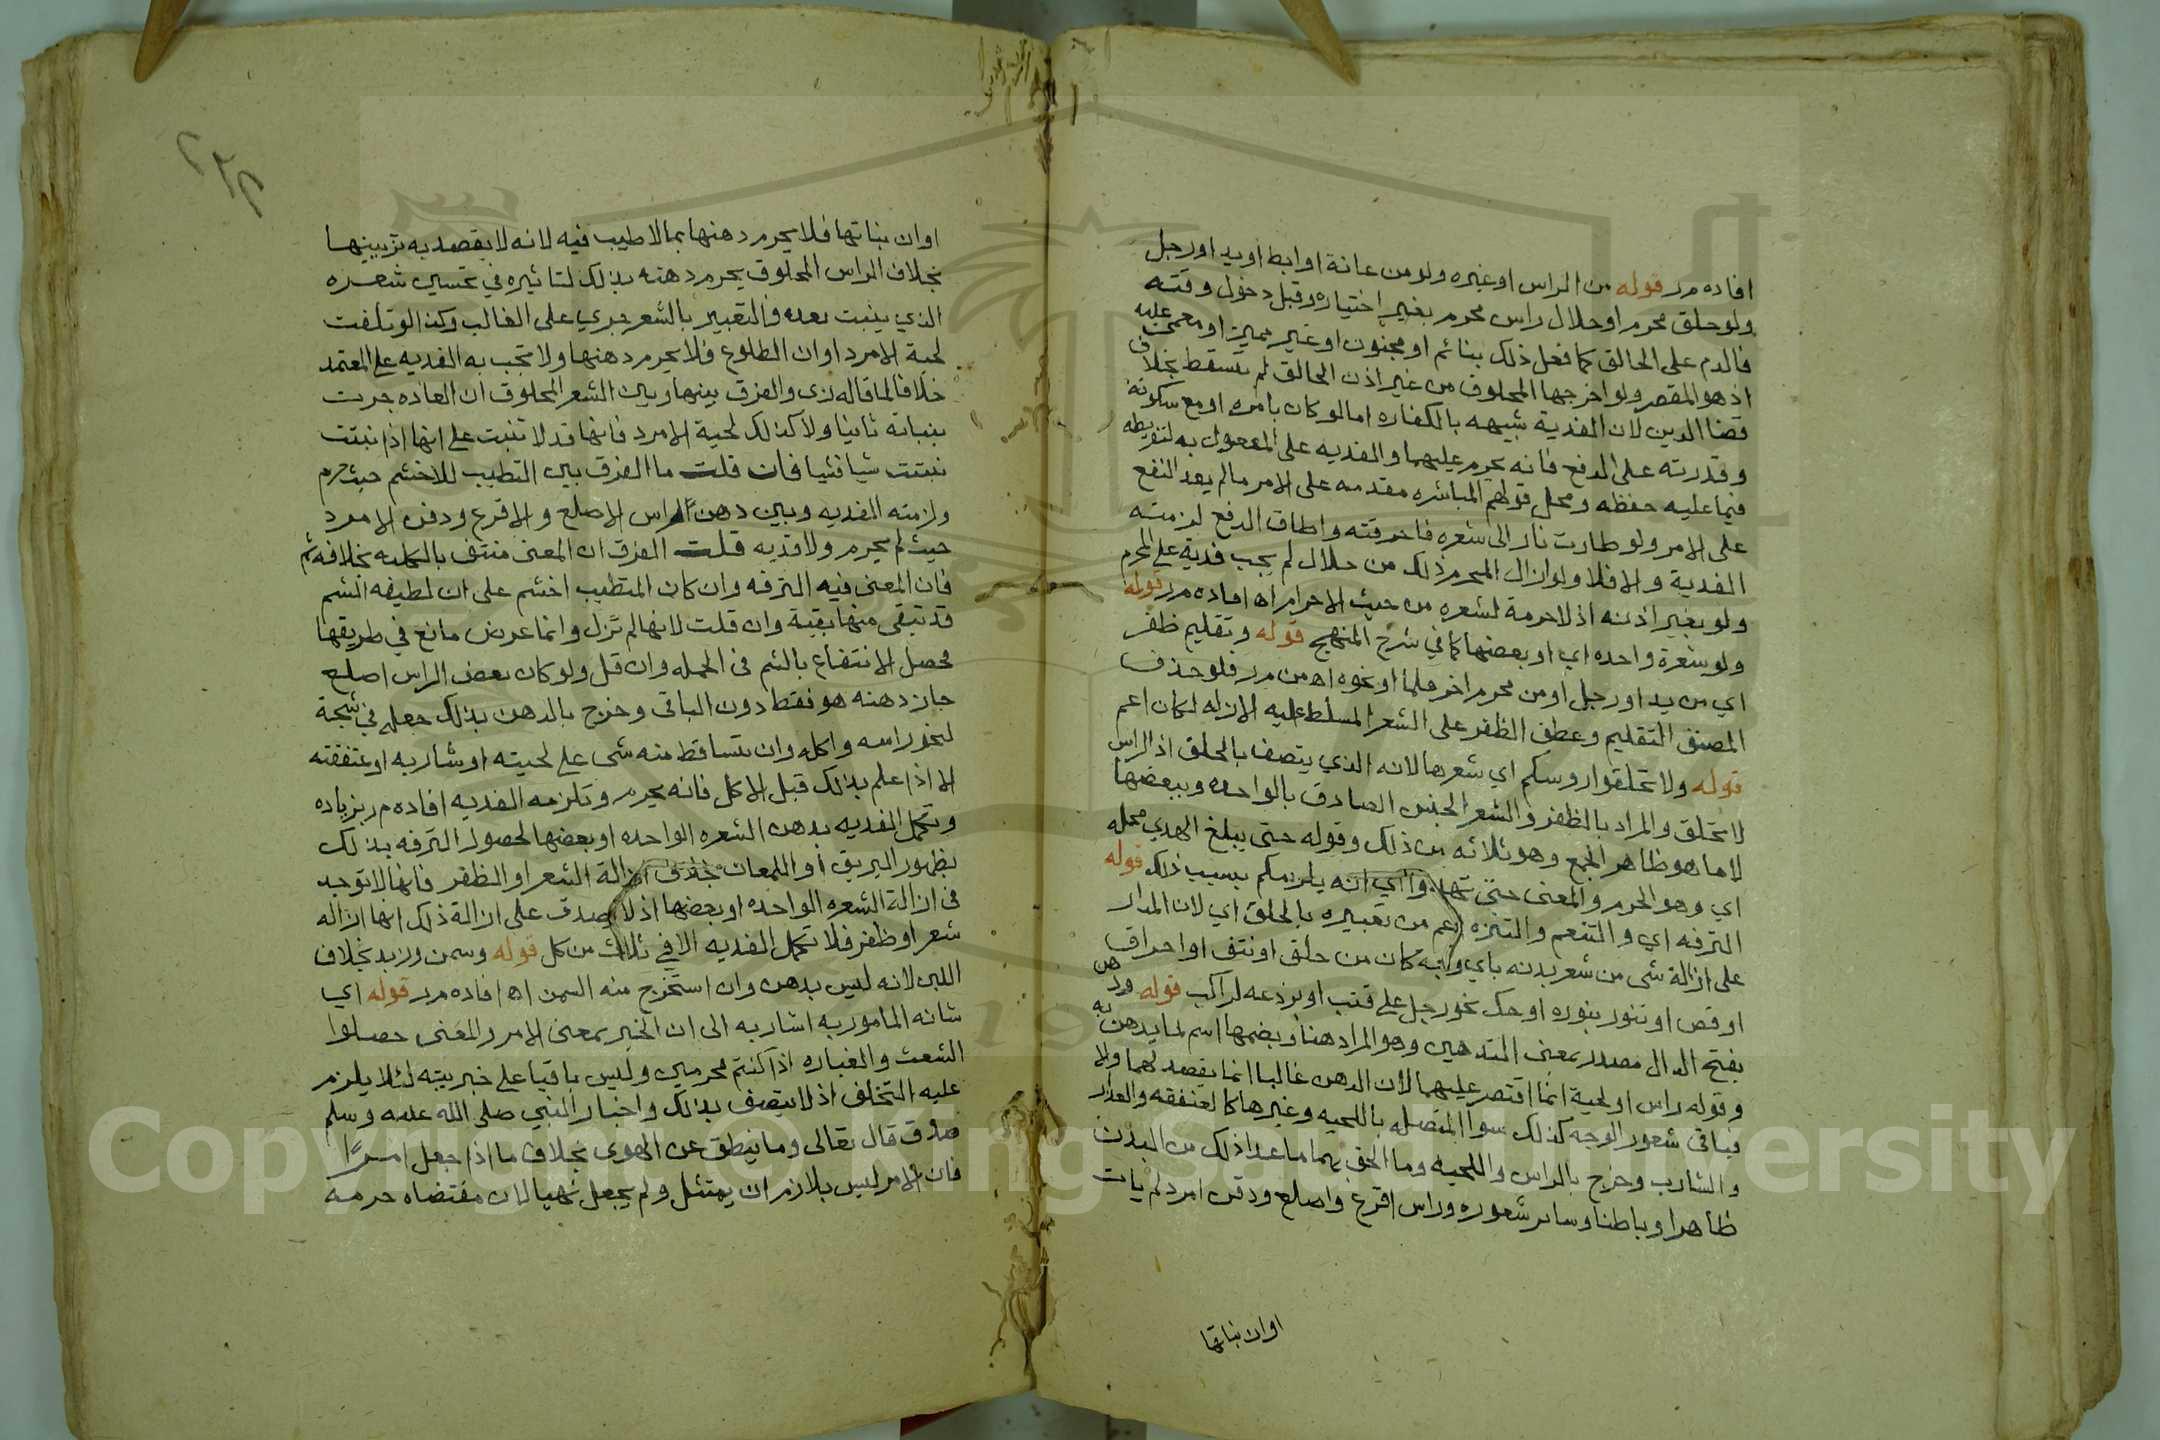 افاده مر قوله من الراس او غيره ولو من عانة او ابط او يد او رجل
ولو حلق محرم او حلال راس محرم بغير اختياره وقبل دخول وقته
فالدم على الحالق كما فعل ذلك بنائم او مجنون او غير مميز او مغمى عليه
اذ هو المقصر ولو اخرجها المحلوق من غير اذن الحالق لم تسقط بخلاف
قضا الدين لان الفدية شبيهه بالكفاره اما لو كان بامره او مع سكوته
وقدرته على الدفع فانه يحرم عليهما والفديه على المفعول به لتفريطه
فيما عليه حفظه ومحل قولهم المباشره مقدمه على الامر مالم يعد النفع
على الامر ولو طارت نار الى شعره فاحرقته واطاق الدفع لزمته
الفدية والا فلا ولو ازال المحرم ذلك من حلال لم يجب فدية على المحرم
ولو بغير اذنه اذ لا حرمة لشعره من حيث الاحرام اه افاده مر قوله
ولو شعرة واحده اي او بعضها كما في شرح المنهج قوله وتقليم ظفر
اي من يد او رجل او من محرم اخر قلما او نحوه اه من مر فلو حذف
المصنف التقليم وعطف الظفر على الشعر المسلط عليه الازاله لكان اعم
قوله ولا تحلقوا روسكم اي شعرها لانه الذي يتصف بالحلق اذ الراس
لا تحلق والمراد بالظفر والشعر الجنس الصادق بالواحده وببعضها
لا ما هو ظاهر الجمع وهو ثلاثه من ذلك وقوله حتى يبلغ الهدي محله
اي وهو الحرم والمعنى حتى اي انه يلزمكم بسبب ذلك قوله
الترفه اي والتنعم والتنزه اعم من تعبيره بالحلق اي لان المدار
على ازالة شى من شعر بدنه باي وجه كان من حلق او نتف او احراق
او قص او تنور بنوره او حك نحو رجل على قتب او برذعه لراكب قوله ودهن
بفتح الدال مصدر بمعنى التدهين وهو المراد هنا وبضمها اسم لما يدهن به
وقوله راس او لحية انما اقتصر عليهما لان الدهن غالبا انما يقصد لهما والا
فباقى شعور الوجه كذلك سوا المتصله باللحيه وغيرها كالعنفقه والعذار
والشارب وخرج بالراس واللحيه وما الحق بهما ما عدا ذلك من البدن
ظاهرا وباطنا وساير شعوره وراس اقرع واصلع وذقن امرد لم يات
اوان نباتها
اوان نباتها فلا يحرم دهنها بما لا طيب فيه لانه لا يقصد به تزيينها
بخلاف الراس المحلوق يحرم دهنه بذلك لتاثيره في تحسين شعره
الذي ينبت بعده فالتعبير بالشعر جري على الغالب وكذا لو تلفت
لحية الامرد اوان الطلوع فلا يحرم دهنها ولا تجب به الفديه على المعتمد
خلافا لما قاله زى والفرق بينها وبين الشعر المحلوق ان العاده جرت
بنباته ثانيا ولا كذلك لحية الامرد فانها قد لا تنبت على انها اذا نبتت
نبتت شيا فشيا فان قلت ما الفرق بين التطيب للاخشم حيث حرم
ولزمته الفديه وبين دهن الراس الاصلع والاقرع وذقن الامرد
حيث لم يحرم ولا فديه قلت الفرق ان المعنى منتف بالكليه بخلافه ثم
فان المعنى فيه الترفه وان كان المتطيب اخشم على ان لطيفه الشم
قد تبقى منها بقية وان قلت لانها لم تزل وانما عرض مانع في طريقها
فحصل الانتفاع بالشم في الجمله وان قل ولو كان بعض الراس اصلع
جاز دهنه هو فقط دون الباقى وخرج بالدهن بذلك جعله في شجة
لنحو راسه واكله وان تساقط منه شى على لحيته او شاربه او عنفقته
الا اذا علم بذلك قبل الاكل فانه يحرم وتلزمه الفديه افاده مر بزياده
وتكمل الفديه بدهن الشعره الواحده او بعضها لحصول الترفه بذلك
بظهور البريق او اللمعان بخلاف ازالة الشعر او الظفر فانها لا توجد
في ازالة الشعره الواحده او بعضها اذ لا يصدق على ازالة ذلك انها ازاله
شعر او ظفر فلا تكمل الفديه الا في ثلاث من كل قوله وسمن وزبد بخلاف
اللبن لانه ليس بدهن وان استخرج منه السمن اه افاده مر قوله اي
شانه المامور به اشار به الى ان الخبر بمعنى الامر والمعنى حصلوا
الشعث والغباره اذا كنتم محرمين وليس باقيا على خبريته لئلا يلزم
عليه التخلف اذ لا يتصف بذلك واخبار النبي صلى الله عليه وسلم
صدق قال تعالى وما ينطق عن الهوى بخلاف ما اذا جعل امرا
فان الامر ليس بلازم ان يمتثل ولم يجعل نهيا لان مقتضاه حرمه
Copyright © King Saud University